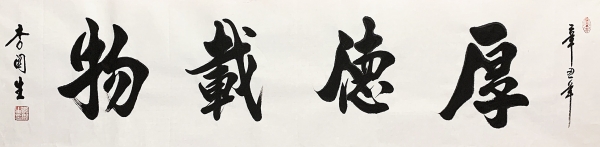 辛丑年
厚德載物
李国生